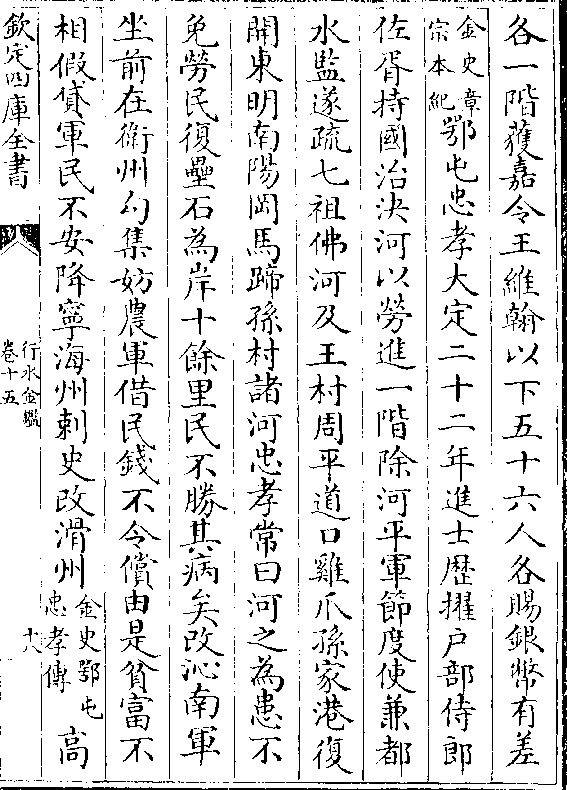 各一階獲嘉令王維翰以下五十六人各賜銀幣有差
金史章宗本紀鄂屯忠孝大定二十二年進士歴擢户部侍郎
佐胥持國治決河以勞進一階除河平軍節度使兼都
水監遂疏七祖佛河及王村周平道口雞爪孫家港復
開東明南陽岡馬蹄孫村諸河忠孝常曰河之為患不
免勞民復壘石為岸十餘里民不勝其病矣改沁南軍
坐前在衛州勾集妨農軍借民錢不令償由是貧富不
相假貸軍民不安降寧海州刺史改滑州金史鄂屯忠孝傳高
欽定四庫全書
行水金鑑
卷十五
十八